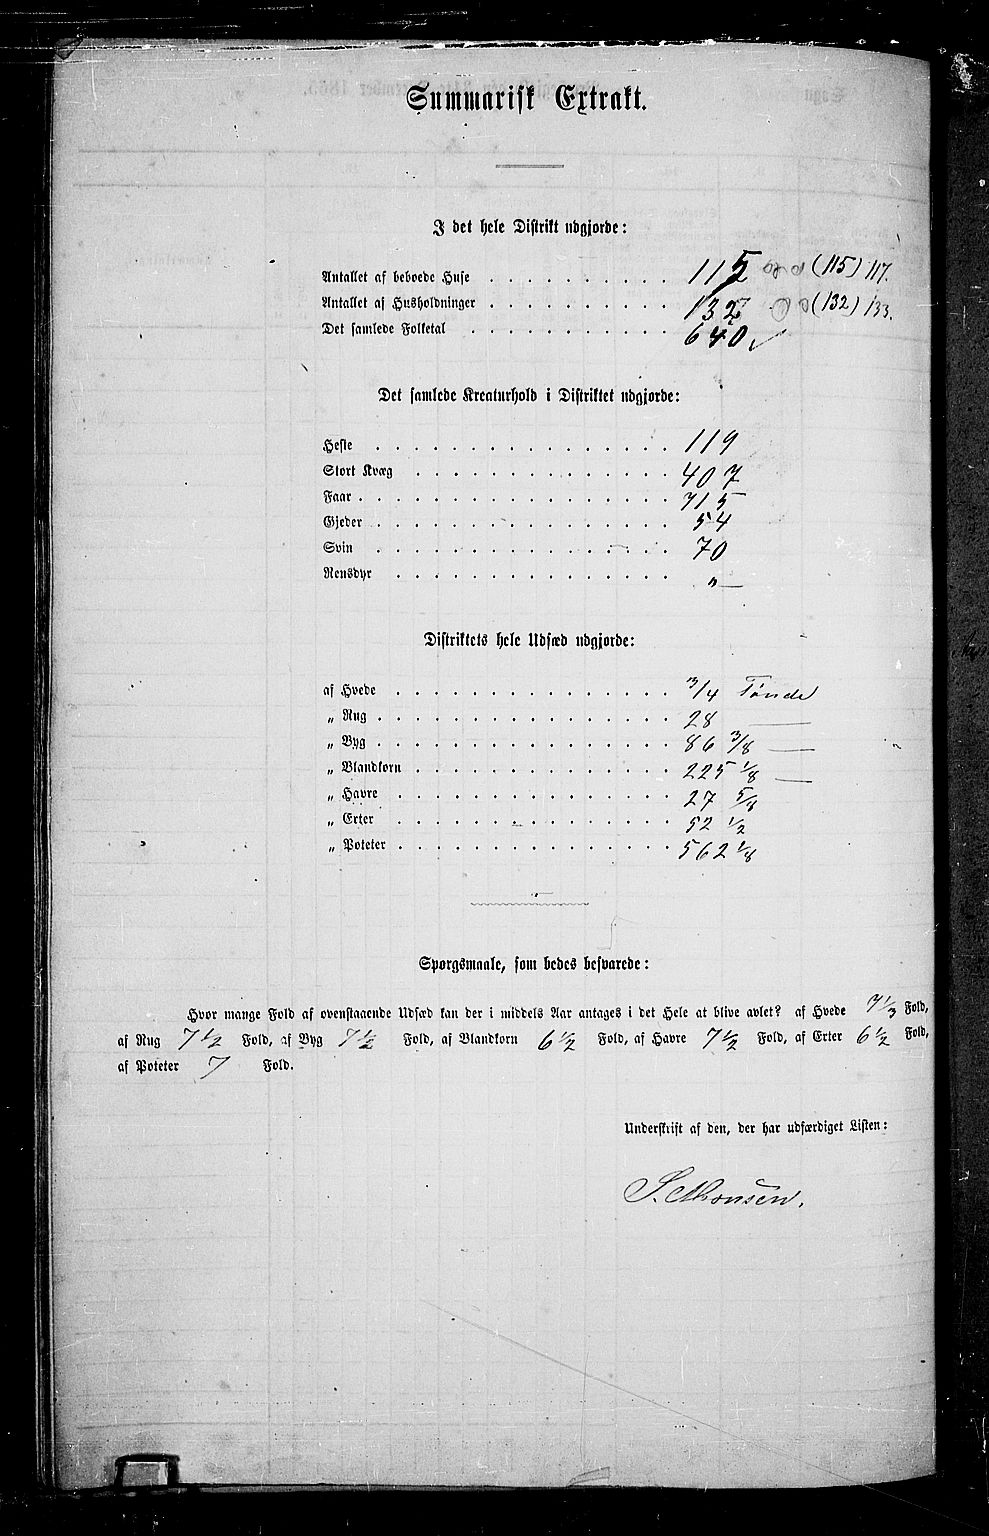 Summarisk Extrakt.
I det hele Distrikt udgjorde:
Antallet af beboede Huse . . . . . . . . . . 115 (115) 117.
Antallet af Husholdninger . . . . . . . . . . 132 (132) 133.
Det samlede Folketal . . . . . . . . . . . 640
Det samlede Kreaturhold i Distriktet udgjorde:
Heste . . . . . . . . . . . . . . . . 119
Stort Kvæg . . . . . . . . . . . . . . 407
Faar . . . . . . . . . . . . . . . . . 715
Gjeder . . . . . . . . . . . . . . . . 54
Svin . . . . . . . . . . . . . . . . 70
Rensdyr . . . . . . . . . . . . . . . „ —
Distriktets hele Udsæd udgjorde:
af Hvede . . . . . . . . . . . . . . . 3/4 Tønde
„ Rug . . . . . . . . . . . . . . . . 28 —
„ Byg . . . . . . . . . . . . . . . . 86 3/8 —
„ Blandkorn . . . . . . . . . . . . . . 225 1/8 —
„ Havre . . . . . . . . . . . . . . . 27 5/8
„ Erter . . . . . . . . . . . . . . . 52 1/2
„ Poteter . . . . . . . . . . . . . . . 562 1/8
Spørgsmaale, som bedes besvarede:
Hvor mange Fold af ovenstaaende Udsæd kan der i middels Aar antages i det Hele at blive avlet? af Hvede 7 1/3 Fold,
af Rug 7 1/2 Fold, af Byg 7 1/2 Fold, af Blandkorn 6 1/2 Fold, af Havre 7 1/2 Fold, af Erter 6 1/2 Fold,
af Poteter 7 Fold.
Underskrift af den, der har udfærdiget Listen:
S. Monsen.